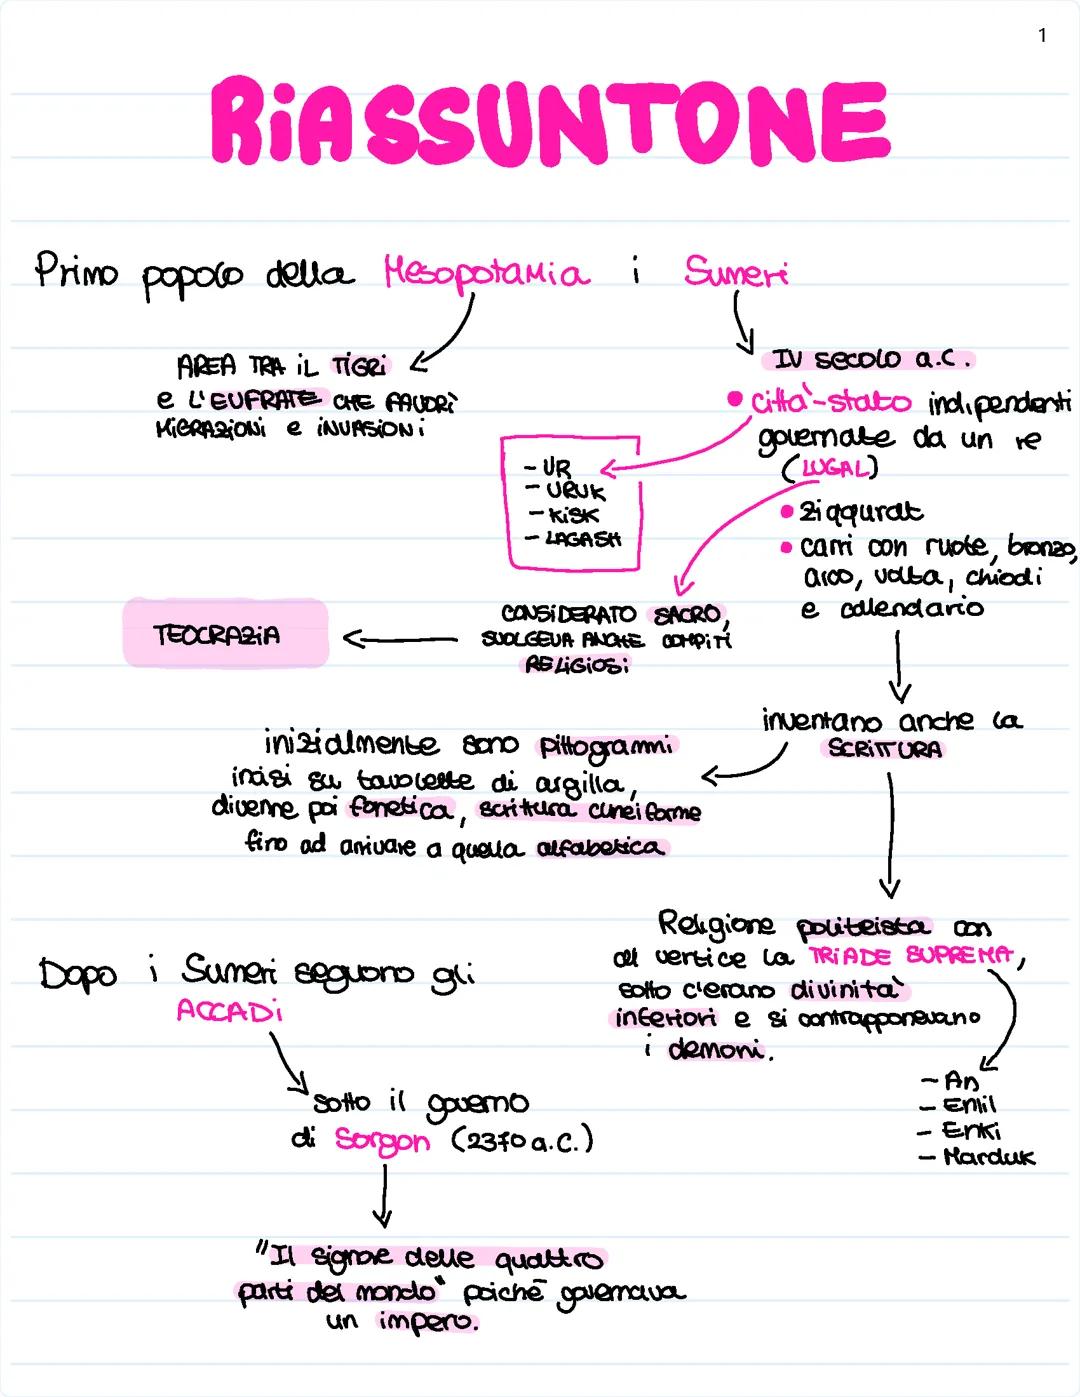 1
RiASSUNTONE
Primo popolo della Mesopotamia i Sumeri
AREA TRA iL TiGRi
e L'EUFRATE CHE FAVORì
MiGRAZiONi e iNVASiONi
IV secolo a.C.
• città-stato indipendenti
governate da un re
(LUGAL)
- UR
- URUK
- KiSK
- LAGASH
• ziqqurat
• carri con ruote, bronzo,
arco, volta, chiodi
e callendario
CONSiDERATO SACRO,
SVOLGEVA ANCHE COMPiTi
RELiGiOSi
TEOCRAZiA
inventano anche la
SCRiTTURA
inizialmente sono pittogrammi
incisi su tavolette di argilla,
divenne poi fonetica, scrittura cuneiforme
fino ad arrivare a quella alfabetica
Religione politeista con
al vertice la TRiADE SUPREMA,
sotto c'erano divinità
inferiori e si contrapponevano
i demoni.
- An
- Enlil
- Enki
- Marduk
Dopo i Sumeri seguono gli
ACCADi
sotto il governo
di Sargon (2370 a.C.)
"Il signore delle quattro
parti del mondo" poichē governava
un impero.